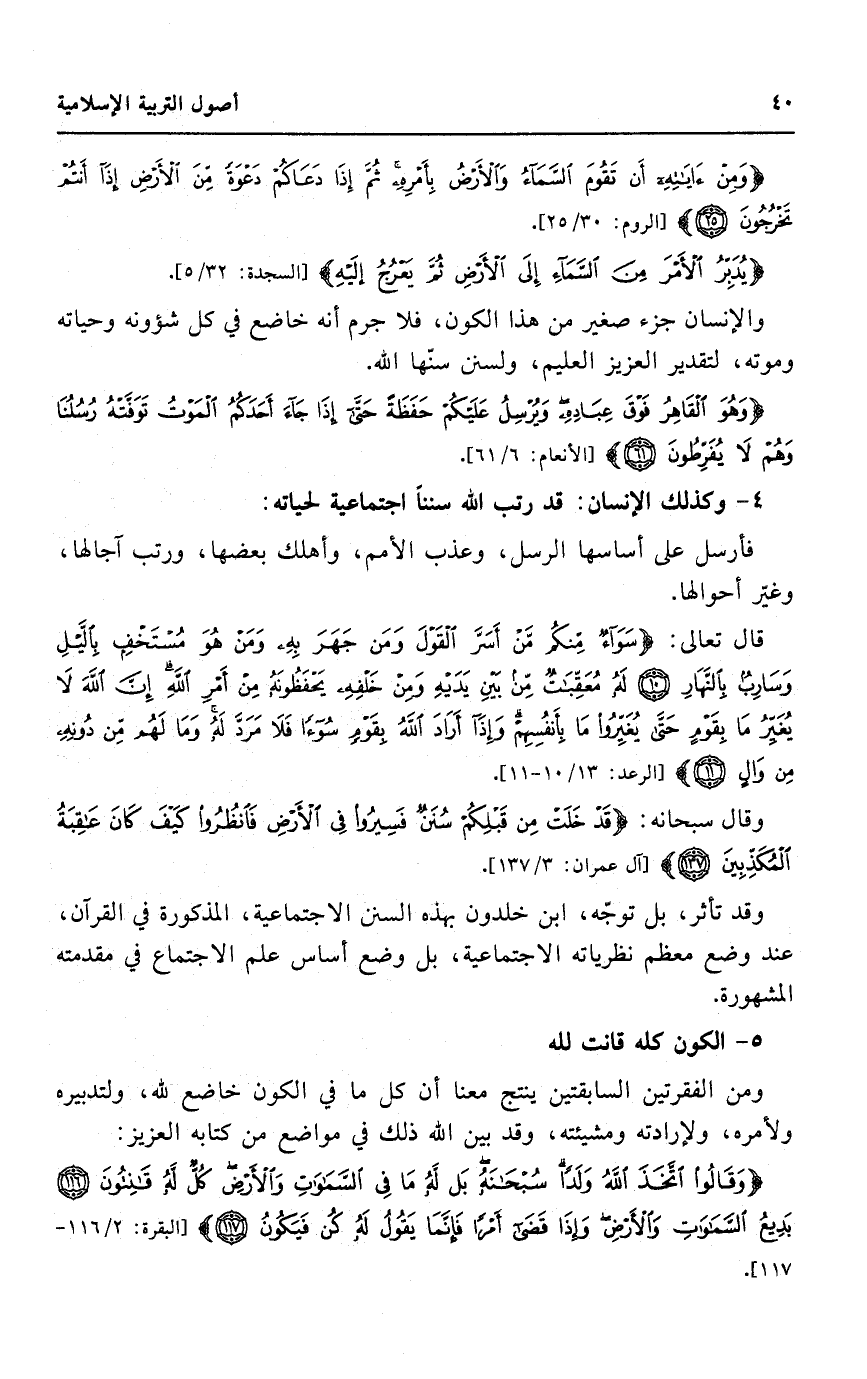 ٤٠ أصول التربية الإسلامية
﴿وَمِنْ ءَايَـٰتِهِۦٓ أَن تَقُومَ ٱلسَّمَآءُ وَٱلْأَرْضُ بِأَمْرِهِۦ ۚ ثُمَّ إِذَا دَعَاكُمْ دَعْوَةً مِّنَ ٱلْأَرْضِ إِذَآ أَنتُمْ
تَخْرُجُونَ ﴿٢٥﴾﴾ [الروم: ٢٥/٣٠].
﴿يُدَبِّرُ ٱلْأَمْرَ مِنَ ٱلسَّمَآءِ إِلَى ٱلْأَرْضِ ثُمَّ يَعْرُجُ إِلَيْهِ﴾ [السجدة: ٥/٣٢].
والإنسان جزء صغير من هذا الكون، فلا جرم أنه خاضع في كل شؤونه وحياته
وموته، لتقدير العزيز العليم، ولسنن سنّها الله.
﴿وَهُوَ ٱلْقَاهِرُ فَوْقَ عِبَادِهِۦ ۖ وَيُرْسِلُ عَلَيْكُمْ حَفَظَةً حَتَّىٰٓ إِذَا جَآءَ أَحَدَكُمُ ٱلْمَوْتُ تَوَفَّتْهُ رُسُلُنَا
وَهُمْ لَا يُفَرِّطُونَ ﴿٦١﴾﴾ [الأنعام: ٦١/٦].
٤- وكذلك الإنسان: قد رتب الله سنناً اجتماعية لحياته:
فأرسل على أساسها الرسل، وعذب الأمم، وأهلك بعضها، ورتب آجالها،
وغيّر أحوالها.
قال تعالى: ﴿سَوَآءٌ مِّنكُم مَّنْ أَسَرَّ ٱلْقَوْلَ وَمَن جَهَرَ بِهِۦ وَمَنْ هُوَ مُسْتَخْفٍۭ بِٱلَّيْلِ
وَسَارِبٌۢ بِٱلنَّهَارِ ﴿١٠﴾ لَهُۥ مُعَقِّبَـٰتٌ مِّنۢ بَيْنِ يَدَيْهِ وَمِنْ خَلْفِهِۦ يَحْفَظُونَهُۥ مِنْ أَمْرِ ٱللَّهِ ۗ إِنَّ ٱللَّهَ لَا
يُغَيِّرُ مَا بِقَوْمٍ حَتَّىٰ يُغَيِّرُوا۟ مَا بِأَنفُسِهِمْ ۗ وَإِذَآ أَرَادَ ٱللَّهُ بِقَوْمٍ سُوٓءًا فَلَا مَرَدَّ لَهُۥ ۚ وَمَا لَهُم مِّن دُونِهِۦ
مِن وَالٍ ﴿١١﴾﴾ [الرعد: ١٠/١٣-١١].
وقال سبحانه: ﴿قَدْ خَلَتْ مِن قَبْلِكُمْ سُنَنٌ فَسِيرُوا۟ فِى ٱلْأَرْضِ فَٱنظُرُوا۟ كَيْفَ كَانَ عَـٰقِبَةُ
ٱلْمُكَذِّبِينَ ﴿١٣٧﴾﴾ [آل عمران: ١٣٧/٣].
وقد تأثر، بل توجّه، ابن خلدون بهذه السنن الاجتماعية، المذكورة في القرآن،
عند وضع معظم نظرياته الاجتماعية، بل وضع أساس علم الاجتماع في مقدمته
المشهورة.
٥- الكون كله قانت لله
ومن الفقرتين السابقتين ينتج معنا أن كل ما في الكون خاضع لله، ولتدبيره
ولأمره، ولإرادته ومشيئته، وقد بين الله ذلك في مواضع من كتابه العزيز:
﴿وَقَالُوا۟ ٱتَّخَذَ ٱللَّهُ وَلَدًا ۗ سُبْحَـٰنَهُۥ ۖ بَل لَّهُۥ مَا فِى ٱلسَّمَـٰوَٰتِ وَٱلْأَرْضِ ۖ كُلٌّ لَّهُۥ قَـٰنِتُونَ ﴿١١٦﴾
بَدِيعُ ٱلسَّمَـٰوَٰتِ وَٱلْأَرْضِ ۖ وَإِذَا قَضَىٰٓ أَمْرًا فَإِنَّمَا يَقُولُ لَهُۥ كُن فَيَكُونُ ﴿١١٧﴾﴾ [البقرة: ١١٦/٢-
١١٧].